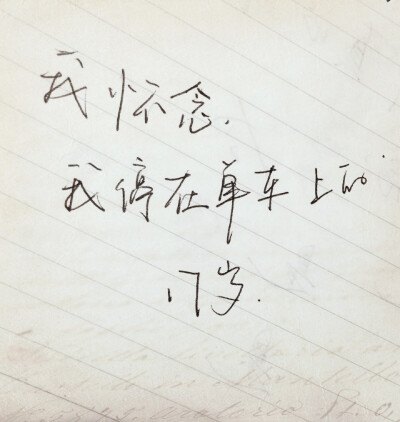 我怀念.
我停在单车上的
17岁.